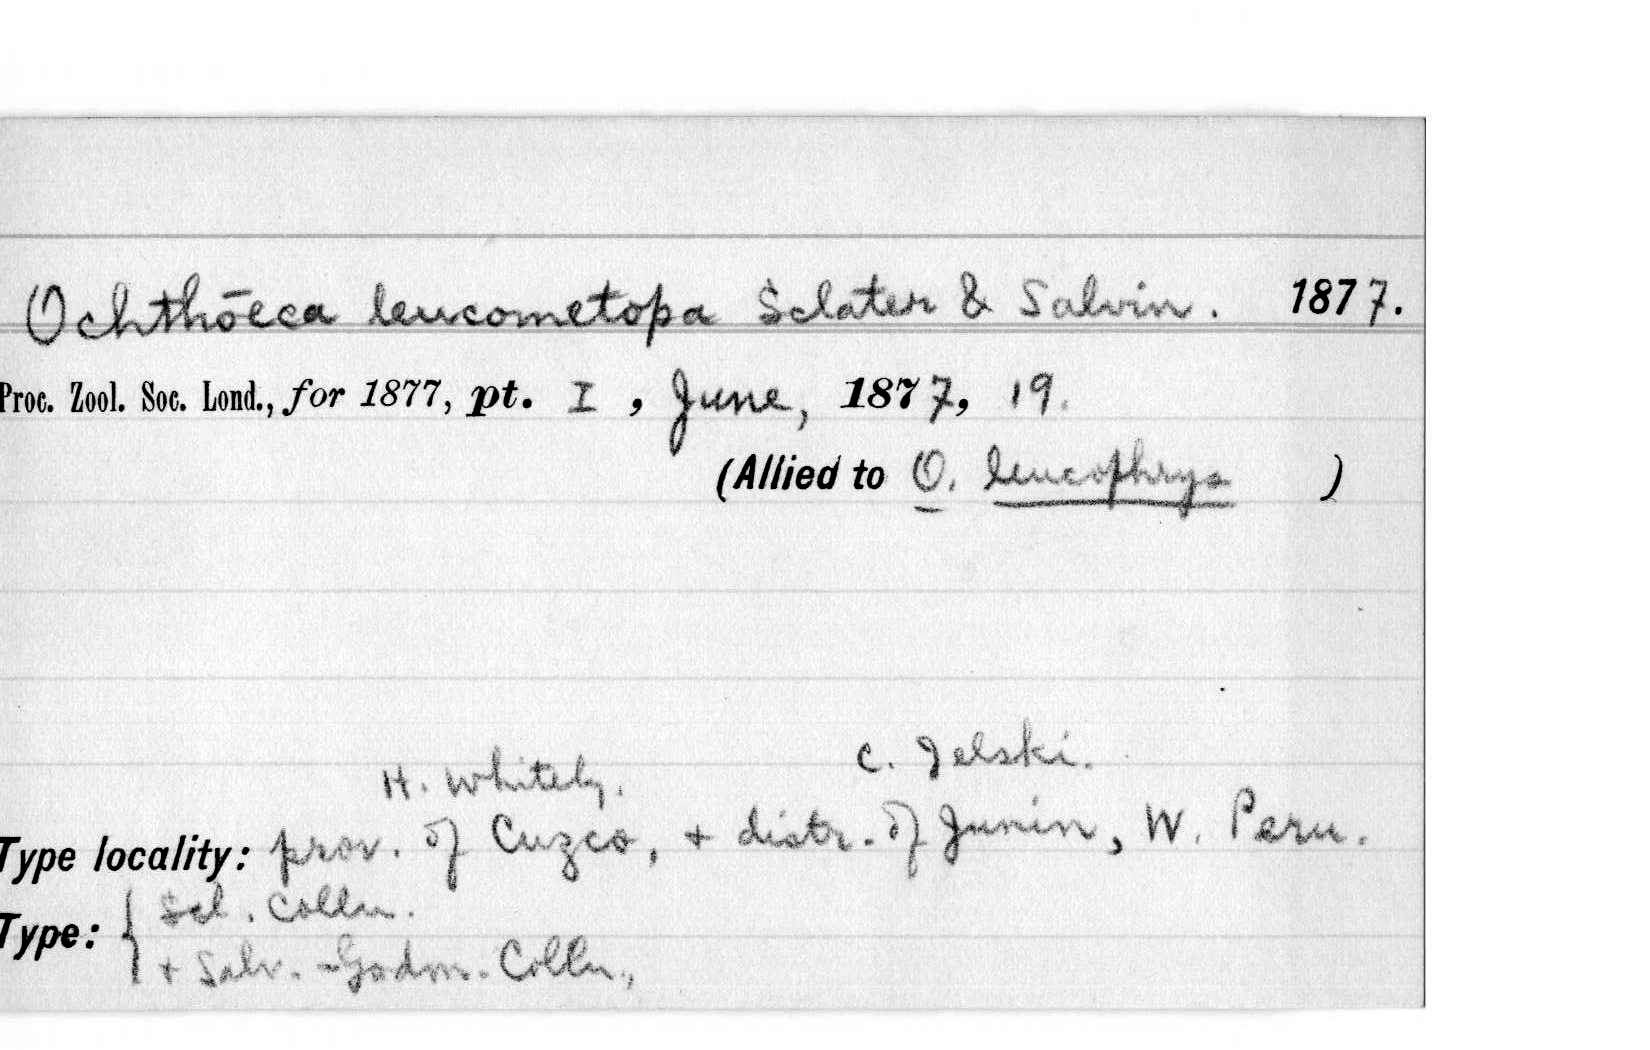 Ochthōeca leucometopa Sclater & Salvin. 1877.
Proc. Zool. Soc. Lond., for 1877, pt. I, June, 1877, 19.
(Allied to O. leucophrys )
H. Whitely. C. Jelski.
Type locality: prov. of Cuzco, + distr. of Junin, W. Peru.
Type: { Scl. Colln.
+ Salv.-Godm. Colln.,